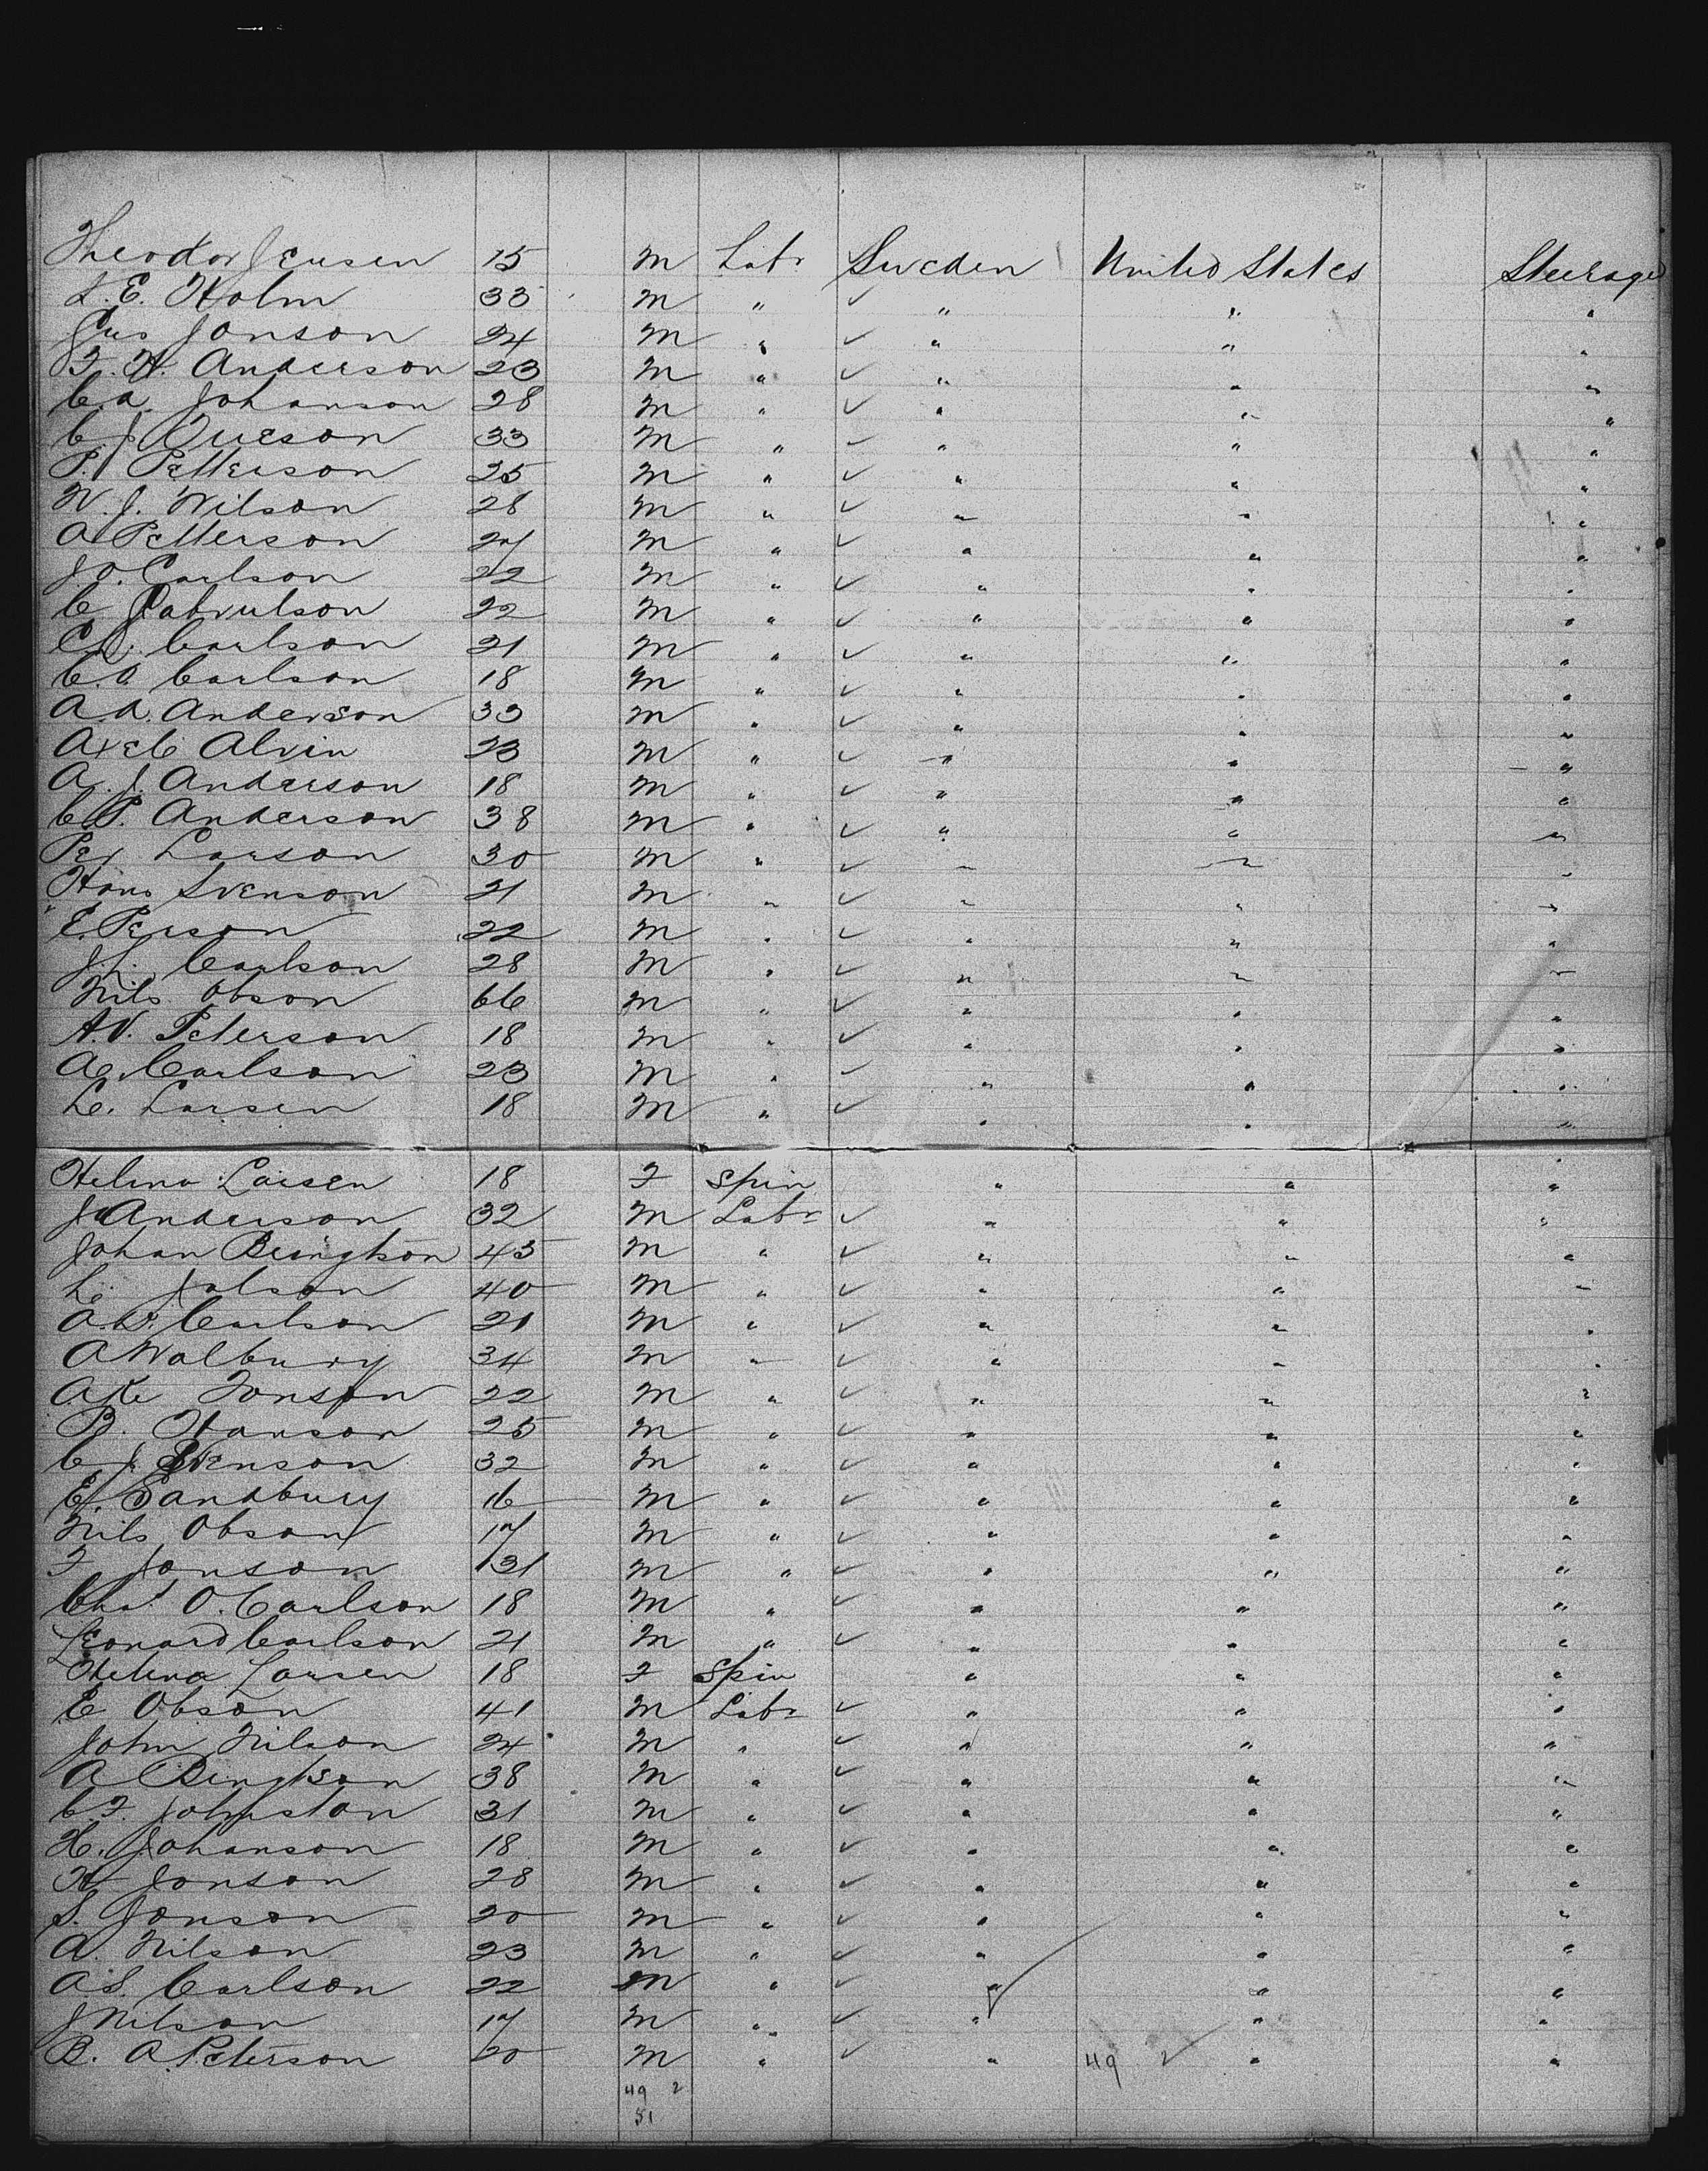 Theodor Jensen 15 m Labr Sweden United States Steerage
L. E. Holm 33 m " ✓ " " "
Gus Jonson 24 m " ✓ " " "
F. H. Anderson 23 m " ✓ " " "
C. A. Johanson 28 m " ✓ " " "
C. J. 33 m " ✓ " " "
P. Petterson 25 m " ✓ " " "
N. J. Wilson 28 m " ✓ " " "
A Petterson 24 m " ✓ " " "
J. O. Carlson 22 m " ✓ " " "
C 22 m " ✓ " " "
Carlson 21 m " ✓ " " "
C. A Carlson 18 m " ✓ " " "
A. A. Anderson 33 m " ✓ " " "
Alvin 23 m " ✓ " " "
A. J. Anderson 18 m " ✓ " " "
C. P. Anderson 38 m " ✓ " " "
Per Larson 30 m " ✓ " " "
Hans Svenson 21 m " ✓ " " "
E. Person 22 m " ✓ " " "
J. L. Carlson 28 m " ✓ " " "
Nils Olson 66 m " ✓ " " "
A. V. Peterson 18 m " ✓ " " "
Carlson 23 m " ✓ " " "
L. Larsen 18 m " ✓ " " "
Helena Larsen 18 F Spin " " "
J Anderson 32 m Labr ✓ " " "
Johan Bengtson 45 m " ✓ " " "
L. 40 m " ✓ " " "
Carlson 21 m " ✓ " " "
A Walbury 34 m " ✓ " " "
Jonson 22 m " ✓ " " "
B. Hanson 25 m " ✓ " " "
C. J. Svenson 32 m " ✓ " " "
E. Sandbury 16 m " ✓ " " "
Nils Olson 17 m " ✓ " " "
F Jonson 31 m " ✓ " " "
Chas O. Carlson 18 m " ✓ " " "
Leonard Carlson 21 m " ✓ " " "
Helena Larsen 18 F Spin " " "
Olson 41 m Labr ✓ " " "
John Nilson 24 m " ✓ " " "
A Bengtson 38 m " ✓ " " "
C. F. Johnston 31 m " ✓ " " "
Johanson 18 m " ✓ " " "
H Jonson 28 m " ✓ " " "
S. Jonson 20 m " ✓ " " "
A. Nilson 23 m " ✓ " " "
A. S. Carlson 22 m " ✓ " " "
J Nilson 17 m " ✓ " " "
B. A Peterson 20 m " ✓ " 49 2 " "
49 2
51